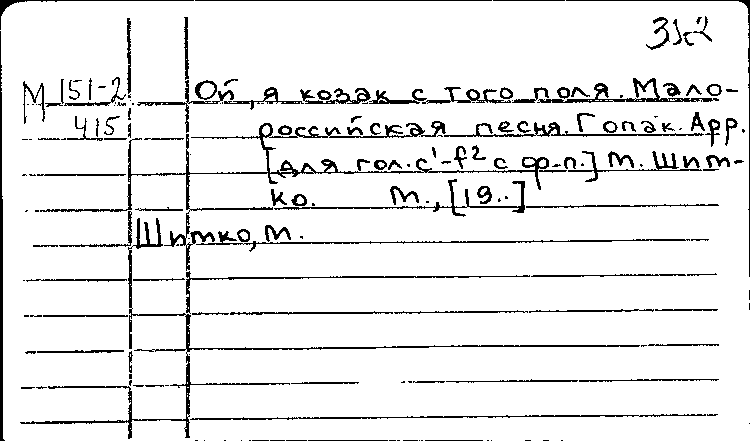 31с2
М 151-2 Ой, я козак с того поля. Мало-
415 российская песня. Гопак. Арр.
[для гол. c¹-f² с ф-п.] М. Шит-
ко. М., [19..]
Шитко, М.